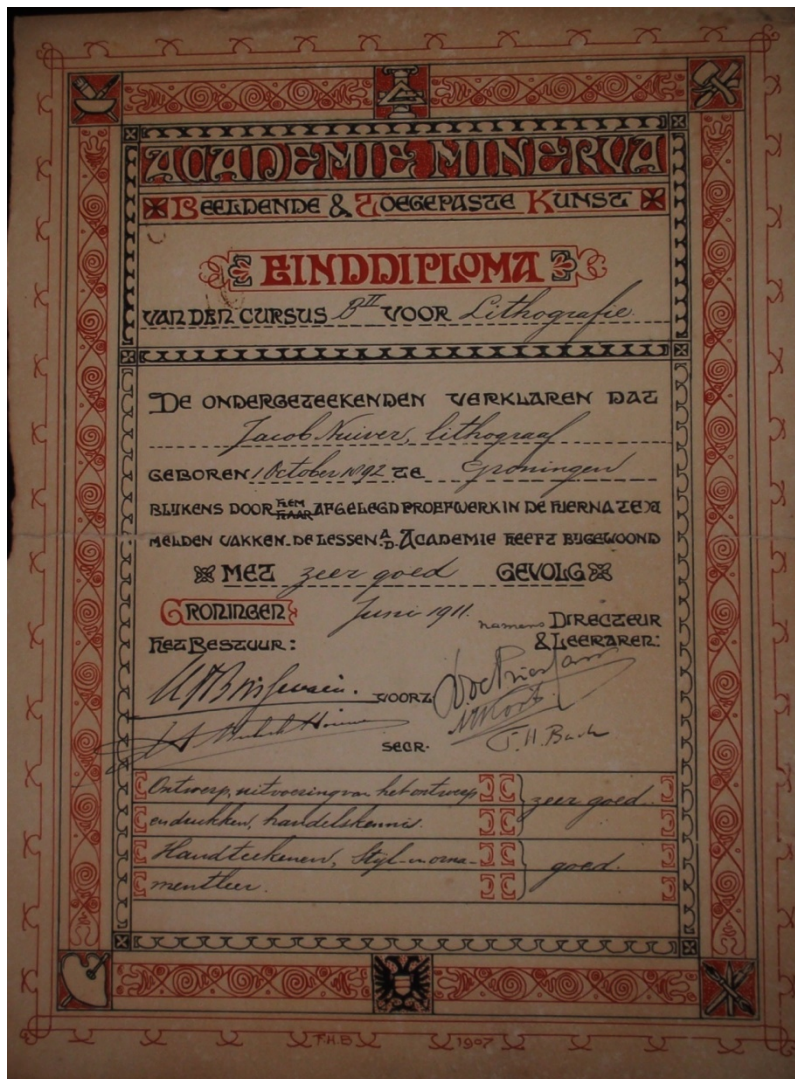 ACADEMIE MINERVA
BEELDENDE & TOEGEPASTE KUNST
EINDDIPLOMA
VAN DEN CURSUS B II VOOR Lithografie.
DE ONDERGETEEKENDEN VERKLAREN DAT
Jacob Nuiver, lithograaf
GEBOREN 1 October 1892 TE Groningen
BLIJKENS DOOR HEM HAAR AFGELEGD PROEFWERK IN DE HIERNA TE
MELDEN VAKKEN DE LESSEN A.D. ACADEMIE HEEFT BIJGEWOOND
MET zeer goed GEVOLG
GRONINGEN Juni 1911. namens DIRECTEUR
HET BESTUUR: & LEERAREN:
VOORZ.
SECR. F.H. Bach
Ontwerp, uitvoering van het ontwerp
en drukken, handelskennis. zeer goed.
Handteekenen, Styl- en orna-
mentleer. goed.
F.H.B. 1907